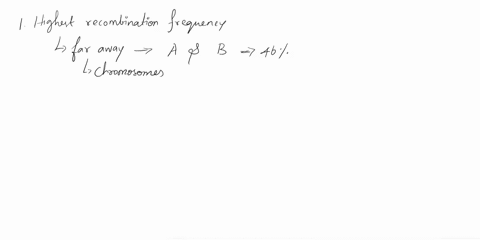 1. Highest recombination frequency
↳ far away → A & B → 46%
↳ chromosomes